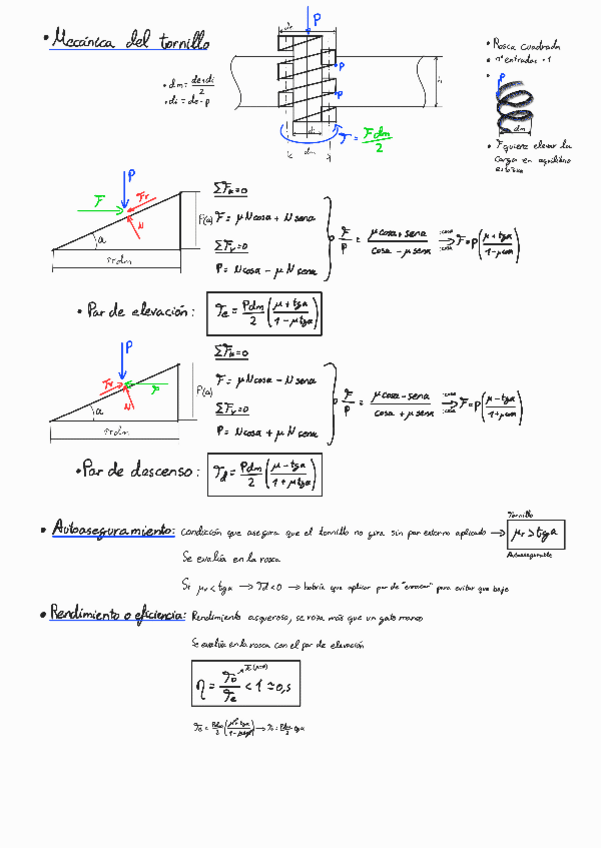 • Mecánica del tornillo
de
P
• dm = de+di / 2
• di = de - p
P
P
di
dm
T = F dm / 2
• Rosca cuadrada
• nº entradas = 1
P
dm
• F quiere elevar la
carga en equilibrio
estático
P
F
Fr
N
α
π dm
P(a)
ΣFx=0
F = μNcosα + Nsenα
ΣFy=0
P = Ncosα - μNsenα
F/P = μcosα + senα / cosα - μsenα
:cosα
:cosα
F = P( μ+tgα / 1-μtgα )
• Par de elevación: Te = Pdm/2 ( μ+tgα / 1-μtgα )
P
Fr
F
N
α
π dm
P(a)
ΣFx=0
F = μNcosα - Nsenα
ΣFy=0
P = Ncosα + μNsenα
F/P = μcosα - senα / cosα + μsenα
:cosα
:cosα
F = P( μ-tgα / 1+μtgα )
• Par de descenso: Td = Pdm/2 ( μ-tgα / 1+μtgα )
Tornillo
• Autoaseguramiento: Condición que asegura que el tornillo no gira sin par externo aplicado → μr > tgα
Autoasegurable
Se evalúa en la rosca
Si μr < tgα → Td < 0 → habría que aplicar par de "frenar" para evitar que baje
• Rendimiento o eficiencia: Rendimiento asqueroso, se roza más que un gato manco
Se evalúa en la rosca con el par de elevación
η = T0/Te < 1 ≃ 0,5
Te(μ=0)
T0 = Pdm/2 ( μ+tgα / 1-μtgα ) → T0 = Pdm/2 tgα